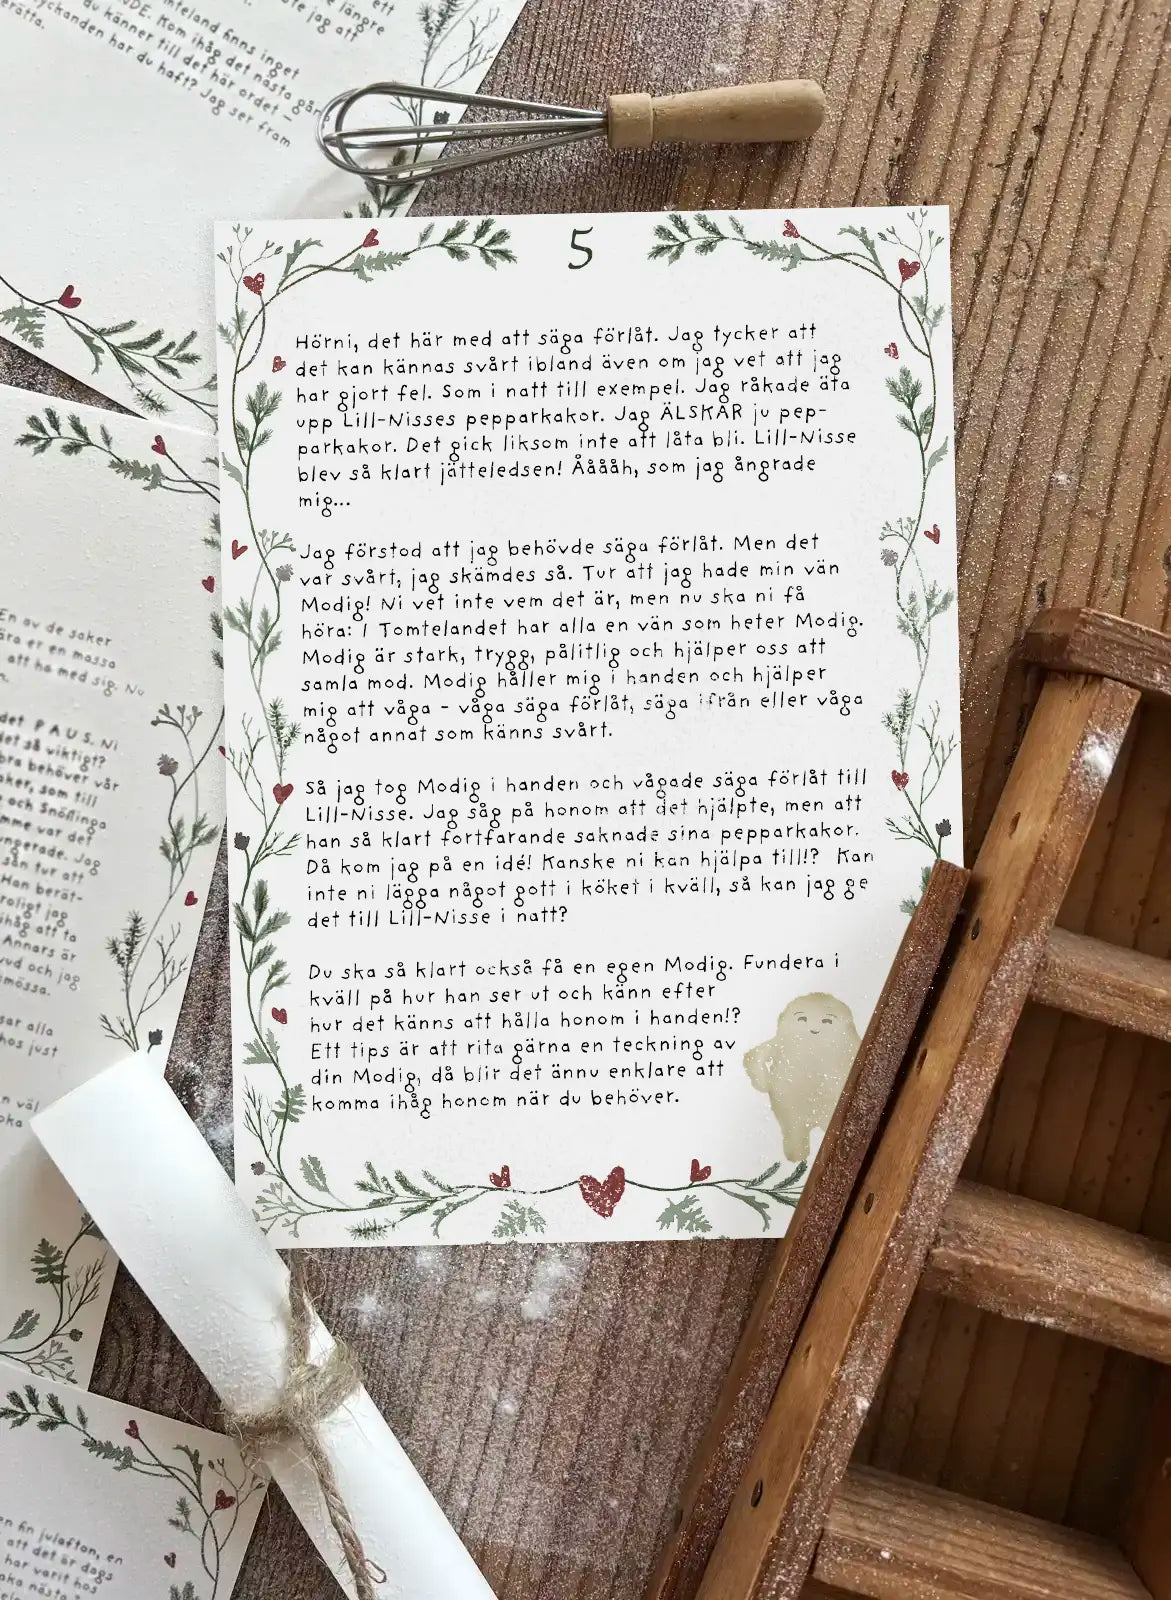 ett
längre
ute jag att
mteland finns inget
NDE. Kom ihåg det nästa gån
du känner till det här ordet –
yckanden har du haft? Jag ser fram
erätta.
5
Hörni, det här med att säga förlåt. Jag tycker att
det kan kännas svårt ibland även om jag vet att jag
har gjort fel. Som i natt till exempel. Jag råkade äta
upp Lill-Nisses pepparkakor. Jag ÄLSKAR ju pep-
parkakor. Det gick liksom inte att låta bli. Lill-Nisse
blev så klart jätteledsen! Ååååh, som jag ångrade
mig...
Jag förstod att jag behövde säga förlåt. Men det
var svårt, jag skämdes så. Tur att jag hade min vän
Modig! Ni vet inte vem det är, men nu ska ni få
höra: I Tomtelandet har alla en vän som heter Modig.
Modig är stark, trygg, pålitlig och hjälper oss att
samla mod. Modig håller mig i handen och hjälper
mig att våga - våga säga förlåt, säga ifrån eller våga
något annat som känns svårt.
Så jag tog Modig i handen och vågade säga förlåt till
Lill-Nisse. Jag såg på honom att det hjälpte, men att
han så klart fortfarande saknade sina pepparkakor.
Då kom jag på en idé! Kanske ni kan hjälpa till!? Kan
inte ni lägga något gott i köket i kväll, så kan jag ge
det till Lill-Nisse i natt?
Du ska så klart också få en egen Modig. Fundera i
kväll på hur han ser ut och känn efter
hur det känns att hålla honom i handen!?
Ett tips är att rita gärna en teckning av
din Modig, då blir det ännu enklare att
komma ihåg honom när du behöver.
En av de saker
ära er en massa
att ha med sig. Nu
n.
det PAUS. Ni
det så viktigt?
bra behöver vår
aker, som till
och Snöflinga
mme var det
ungerade. Jag
sån tur att
Han berät-
roligt jag
ihåg att ta
Annars är
vud och jag
mössa.
sar alla
hos just
n väl
oka
en fin julafton, en
att det är dags
har varit hos
aka nästa